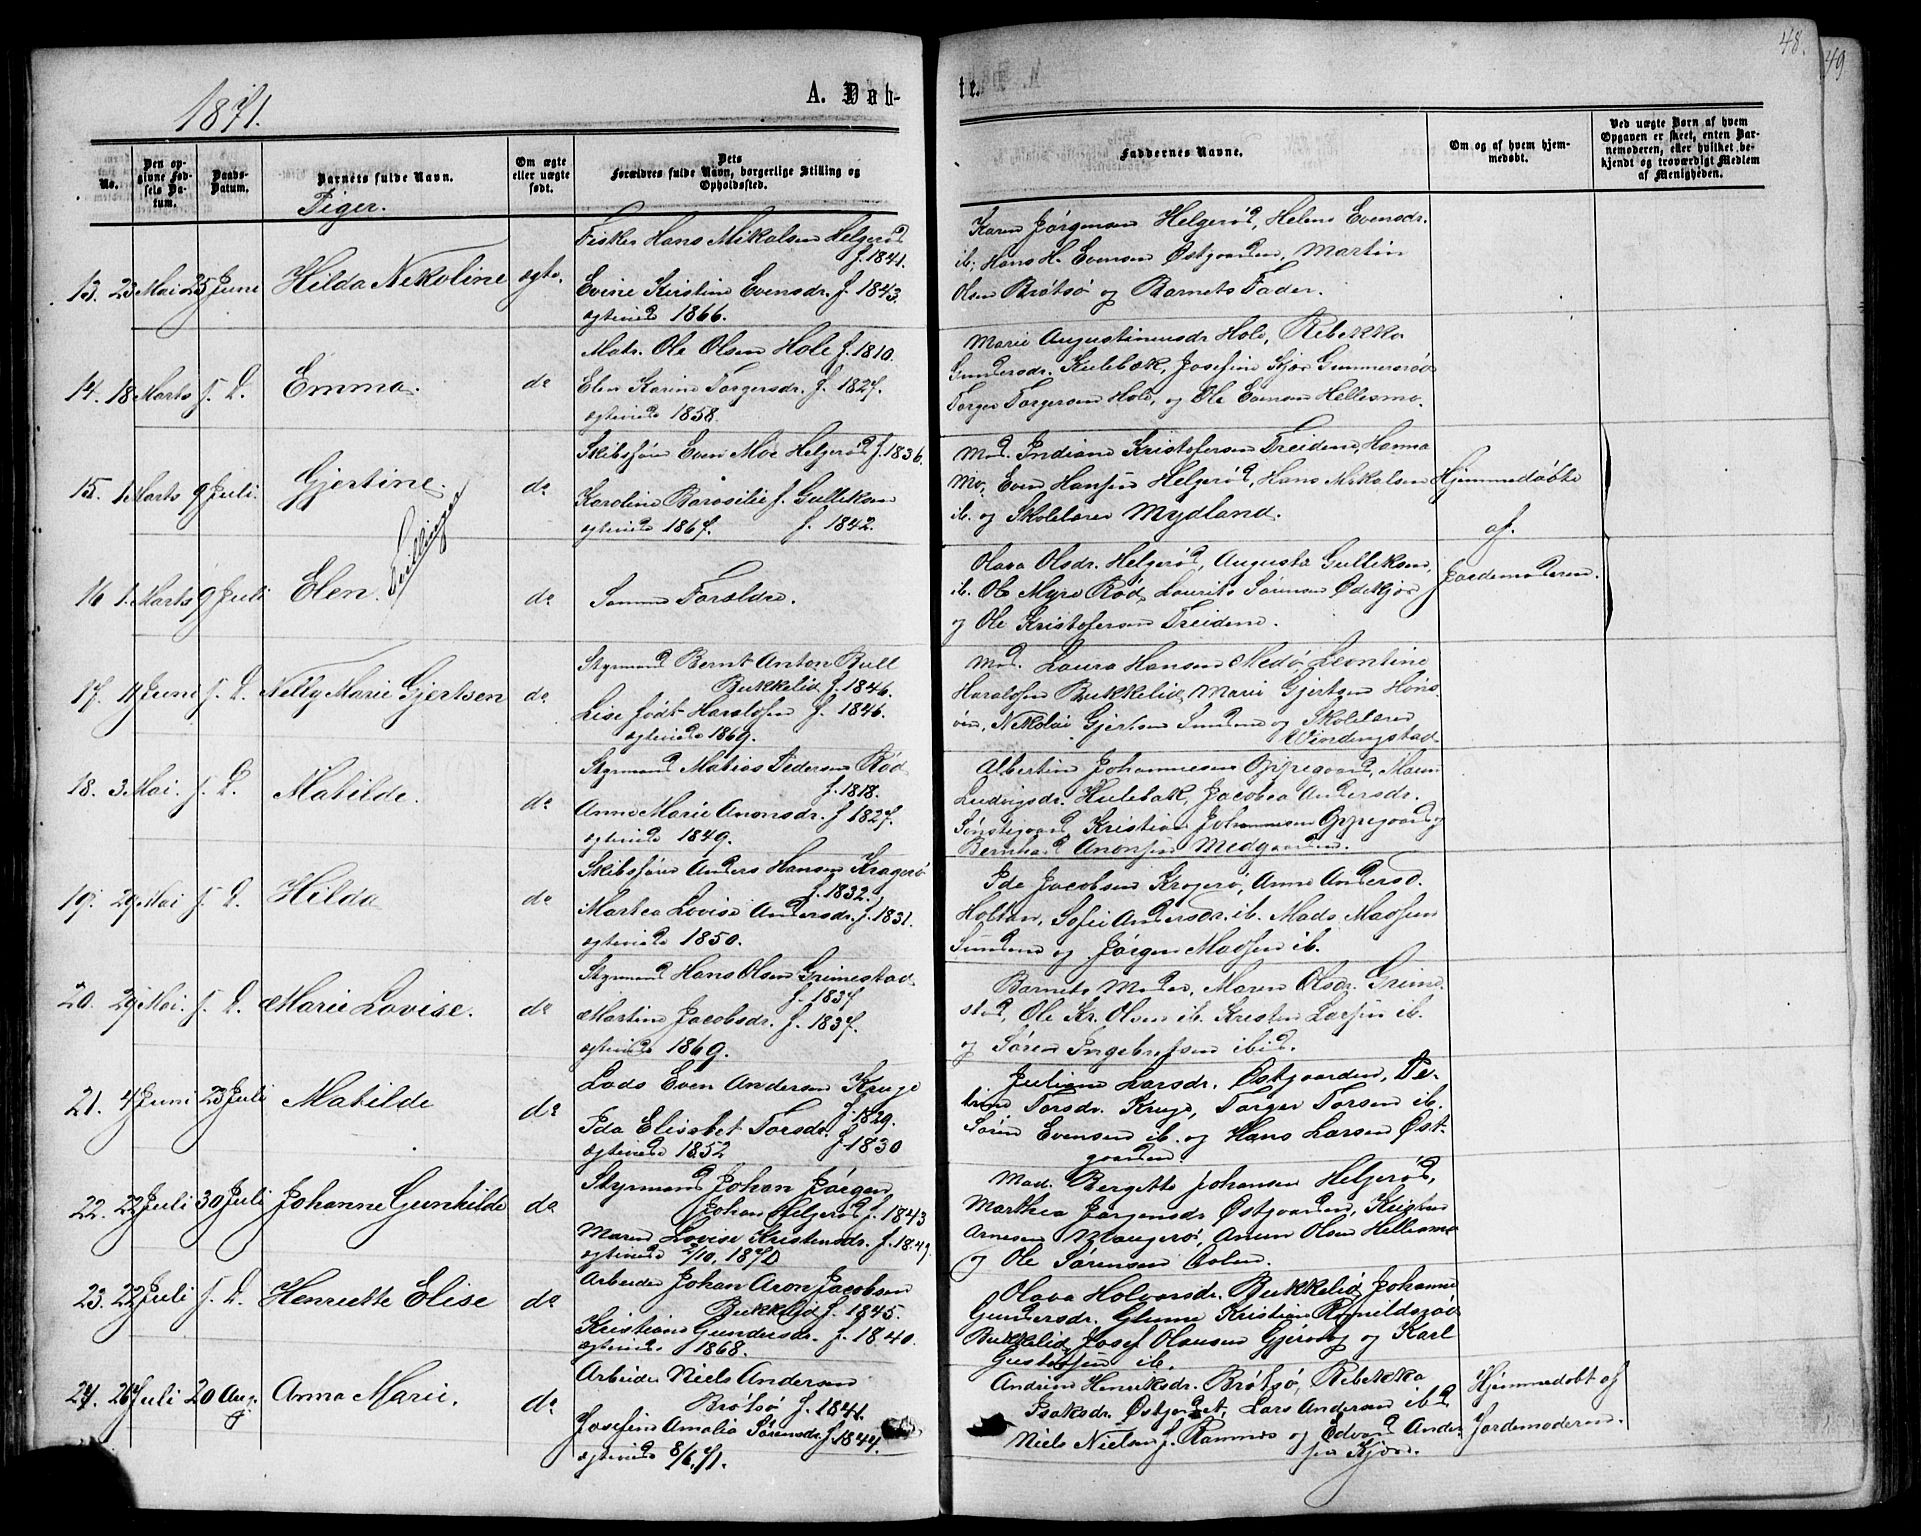 48.
49
1871.
A. Døb-
te.
No.
Den op-
givne Fød-
sels Da-
tum.
Daabs-
Datum.
Barnets fulde Navn.
Om ægte
eller uægte
født.
Dets
Forældres fulde Navn, borgerlige Stilling og
Opholdssted.
Faddernes Navne.
Om og af hvem hjem-
medøbt.
Ved uægte Børn af hvem
Opgaven er skeet, enten Bar-
nemoderen, eller hvilket be-
kjendt og troværdigt Medlem
af Menigheden.
Piger.
13. 23 Mai 25 Juni Hilda Nikoline ægte.
Fisker Hans Mikalsen Helgerød
f. 1841.
Evine Kirstine Evensdr. f. 1843.
ægteviede 1866.
Karen Jørgensen Helgerød, Helene Evensdr.
ib; Hans H. Evensen Østgaarden, Martin
Olsen Brøtsø og Barnets Fader.
14. 18 Marts s. D. Emma. do
Matr. Ole Olsen Hole f. 1810.
Elen Karine Torgersdr. f. 1827.
ægteviede 1858.
Marie Augustinusdr Hole, Rebekka
Gundersdr. Kulebæk, Josefine Kjær Gunnersrød
Torger Torgersen Hole, og Ole Evensen Hellesmo.
15. 1. Marts 9 Juli. Gjertine. do
Tvillinger
Skibsfører Even Moe Helgerød f. 1836.
Karoline Borosilie f. Gulliksen
ægteviede 1867. f. 1842.
Mad. Indiane Kristofersen Treidene, Hanna
Mo, Even Hansen Helgerød, Hans Mikalsen
ib. og Skolelærer Mydland.
Hjemmedøbte
af.
Jordemoderen.
16. 1. Marts 9 Juli Elen. do
Samme Forældre.
Olava Olsdr. Helgerød, Augusta Gulliksen,
ib. Ole Myre Rød, Laurits Sørensen Ødekjær
og Ole Kristofersen Treidene.
17. 11 Juni s. D. Nelly Marie Gjertsen do
Styrmand Bernt Anton Bull
Bukkelid f. 1846.
Lise født Haralsen f. 1846.
ægteviede 1869.
Mad. Laura Hansen Medø, Leontine
Haralsen Bukkelid, Marie Gjertsen Høns-
øen, Nikolai Gjertsen Sundene og Skolelærer
Vindingstad.
18. 3 Mai. s. D. Matilde. do
Styrmand Matias Pedersen Rød
f. 1818.
Anne Marie Anonsdr. f. 1827.
ægteviede 1849.
Albertine Johannesen Oppegaard, Maren
Ludvigsdr. Hulebak, Jacobea Andersdr.
Sønstegaard, Kristian Johannesen Oppegaard og
Bernhard Anonsen Medgaarden.
19. 29 Mai s. D. Hilda do
Skibsfører Anders Hansen Kragerø
f. 1832.
Martea Lovise Andersdr. f. 1831.
ægteviede 1850.
Ida Jacobsen Kragerø, Anne Andersd.
Holtan, Sofie Andersdr. ib. Mads Madsen
Sundene og Jørgen Madsen ib.
20. 29 Mai. s. D. Marie Lovise. do
Styrmand Hans Olsen Grimestad
f. 1837
Martine Jacobsdr. f. 1837.
ægteviede 1869.
Barnets Moder, Maren Olsdr. Grime-
stad, Ole Kr. Olsen ib. Kristen Larsen ib.
og Søren Ingebretsen ibid.
21. 4 Juni 23 Juli Matilde do
Lods Even Andersen Kruge
f. 1829.
Ida Elisabet Torsdr.
ægteviede 1852 f. 1830
Juliane Larsdr. Østgaarden, Pe-
trine Torsdr. Kruge, Torger Torsen ib.
Søren Evensen ib. og Hans Larsen Øst-
gaarden.
22. 22 Juli 30 Juli Johanne Gunhilde do
Styrmand Johan Jørgen
Johans Helgerød f. 1843
Maren Lovise Kristensdr. f. 1849.
ægteviede 2/10, 1870
Mad. Bergitte Johansen Helgerød,
Marthea Jørgensdr Østgaarden, Kristen
Arnesen Maugerø, Anun Olsen Hellesmo
og Ole Sørensen Aolen.
23. 22 Juli s. D. Henriette Elise do
Arbeider Johan Aron Jacobsen
Bukkelid f. 1845.
Kristiane Gundersdr. f. 1840.
ægteviede 1868.
Olava Holvorsdr. Bukkelid, Johanne
Gundersdr. Glenne Kristian Romildsrød
Bukkelid, Josef Olausen Gjervaag og Karl
Gustafsen ib.
24. 26 Juli 20 Aug. Anna Marie. do
Arbeider Niels Andersen
Brøtsø f. 1841.
Josefine Amalia Sørensdr. f. 1844.
ægteviede 8/6 71.
Andrine Henriksdr. Brøtsø, Rebekka
Isaksdr. Østjordet, Lars Andersen ibd
Niels Nielsen f. Ramnes og Edvard Anders
fra Kjær.
Hjemmedøbt af
Jordemoderen.